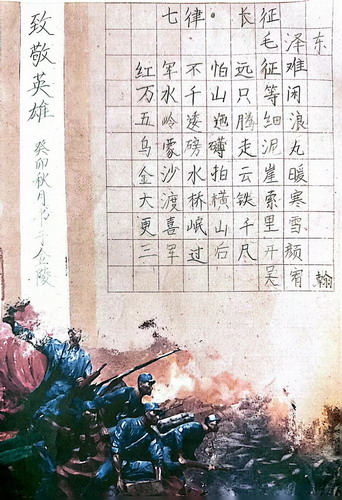 七律·长征
毛泽东
红军不怕远征难
万水千山只等闲
五岭逶迤腾细浪
乌蒙磅礴走泥丸
金沙水拍云崖暖
大渡桥横铁索寒
更喜岷山千里雪
三军过后尽开颜
吴宥翰
致敬英雄
癸卯秋月书于金陵